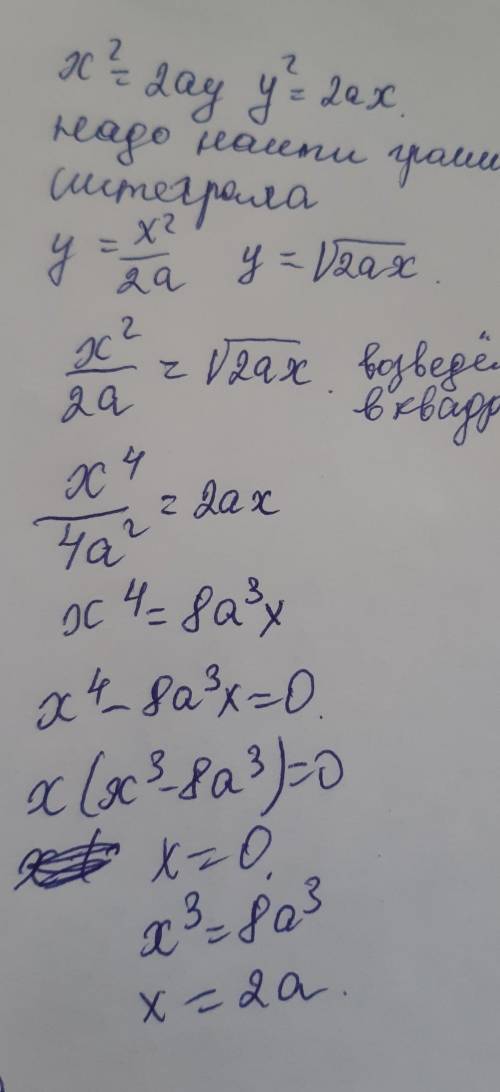 x² = 2ay y² = 2ax.
надо найти грани
интеграла
y = x²/2a y = √2ax.
x²/2a = √2ax. возведём
в квадр
x⁴/4a² = 2ax
x⁴ = 8a³x
x⁴ - 8a³x = 0.
x(x³ - 8a³) = 0
x = 0.
x³ = 8a³
x = 2a.